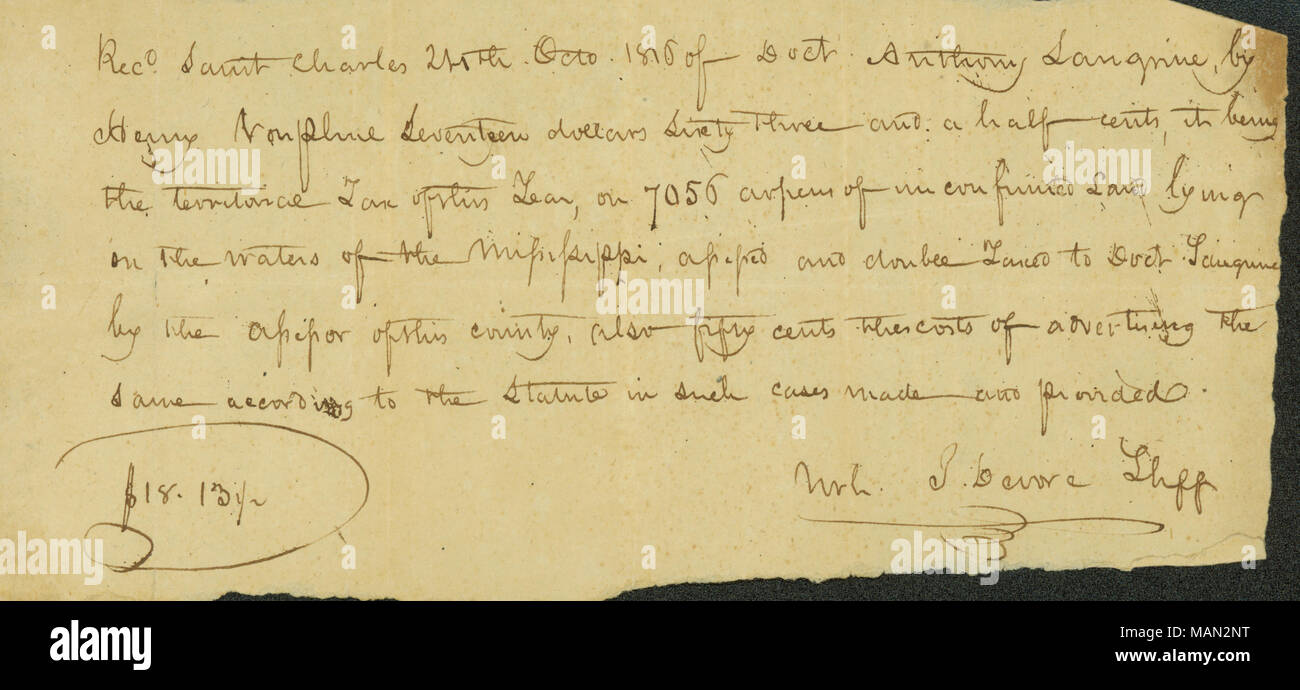 Recd. Saint Charles 24th. Octo. 1816 of Doct. Anthony Saugrine, by
Henry Seventeen dollars Sixty three and a half cents, it being
the territorial Tax of this Year, on 7056 arpens of unconfirmed Land lying
on the waters of the Mississippi, assessed and double Taxed to Doct. Saugrine
by the assessor of this county, also fifty cents the costs of advertising the
same according to the Statute in such cases made and provided.
$18. 13 1/2
Urh. J. Devore Shff
alamy
a
Image ID: MAN2NT
www.alamy.com